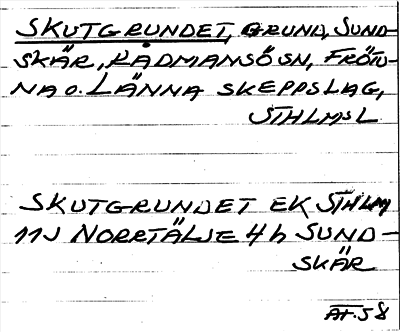 SKUTGRUNDET, GRUND, SUND-
SKÄR, RÅDMANSÖ SN, FRÖTU-
NA O. LÄNNA SKEPPSLAG,
STHLMS L
SKUTGRUNDET EK STHLM
11J NORRTÄLJE 4 h SUND-
SKÄR
AF.58